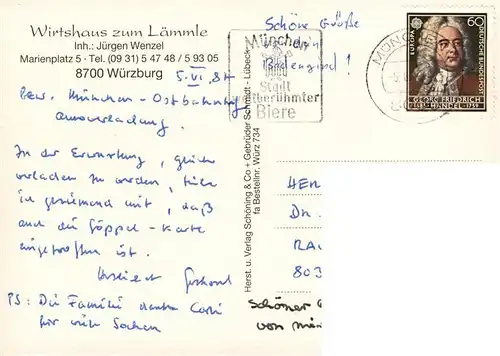 Wirtshaus zum Lämmle
Inh.: Jürgen Wenzel
Marienplatz 5 · Tel. (09 31) 5 47 48 / 5 93 05
8700 Würzburg
5.VI.85
bzw. München - Ostbahnhof
In der Erwartung, gleich
verladen zu werden, teile
ich geziemend mit, daß
auch die Göppel - Karte
eingetroffen ist.
Herzlichst Gerhard
PS: Die Familie dankte Cari
für viele Sachen
Herst. u. Verlag Schöning & Co + Gebrüder Schmidt - Lübeck
fa Bestellnr. Würz 734
Schöne Grüße
München
Stadt
weltberühmter
Biere
MÜNCHEN
EUROPA
60
DEUTSCHE BUNDESPOST
GEORG FRIEDRICH
1685 HÄNDEL 1759
HER
DR.
RA
803
Schöner G
von mir